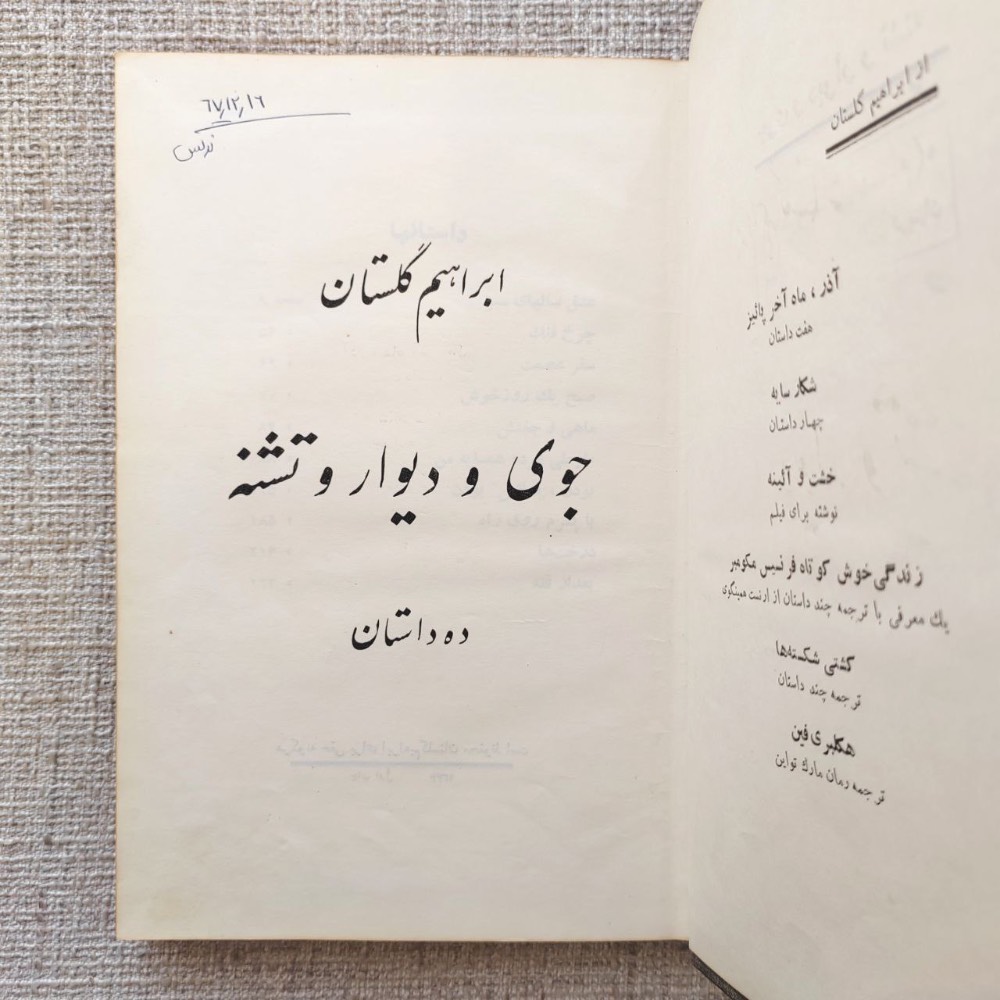 از ابراهیم گلستان
آذر، ماه آخر پائیز
هفت داستان
شکار سایه
چهار داستان
خشت و آئینه
نوشته برای فیلم
زندگی خوش کوتاه فرنسیس مکومبر
یك معرفی با ترجمه چند داستان از ارنست همینگوی
کشتی شکسته‌ها
ترجمه چند داستان
هکلبری فین
ترجمه رمان مارك تواین
۶۷٫۱۲٫۱۶
ابراهیم گلستان
جوی و دیوار و تشنه
ده داستان